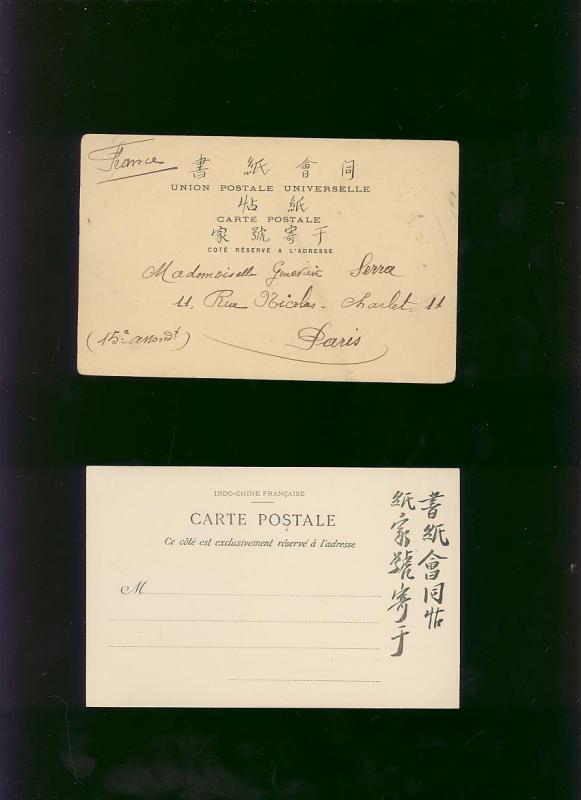 France
書 紙 會 同
UNION POSTALE UNIVERSELLE
帖 紙
CARTE POSTALE
家 號 寄 于
COTÉ RÉSERVÉ A L'ADRESSE
Mademoiselle Geneviève Serra
11, Rue Nicolas-Charlet. 11
(15e arrondt)
Paris
INDO-CHINE FRANÇAISE
CARTE POSTALE
Ce côté est exclusivement réservé à l'adresse
M
書紙會同帖
紙家號寄于